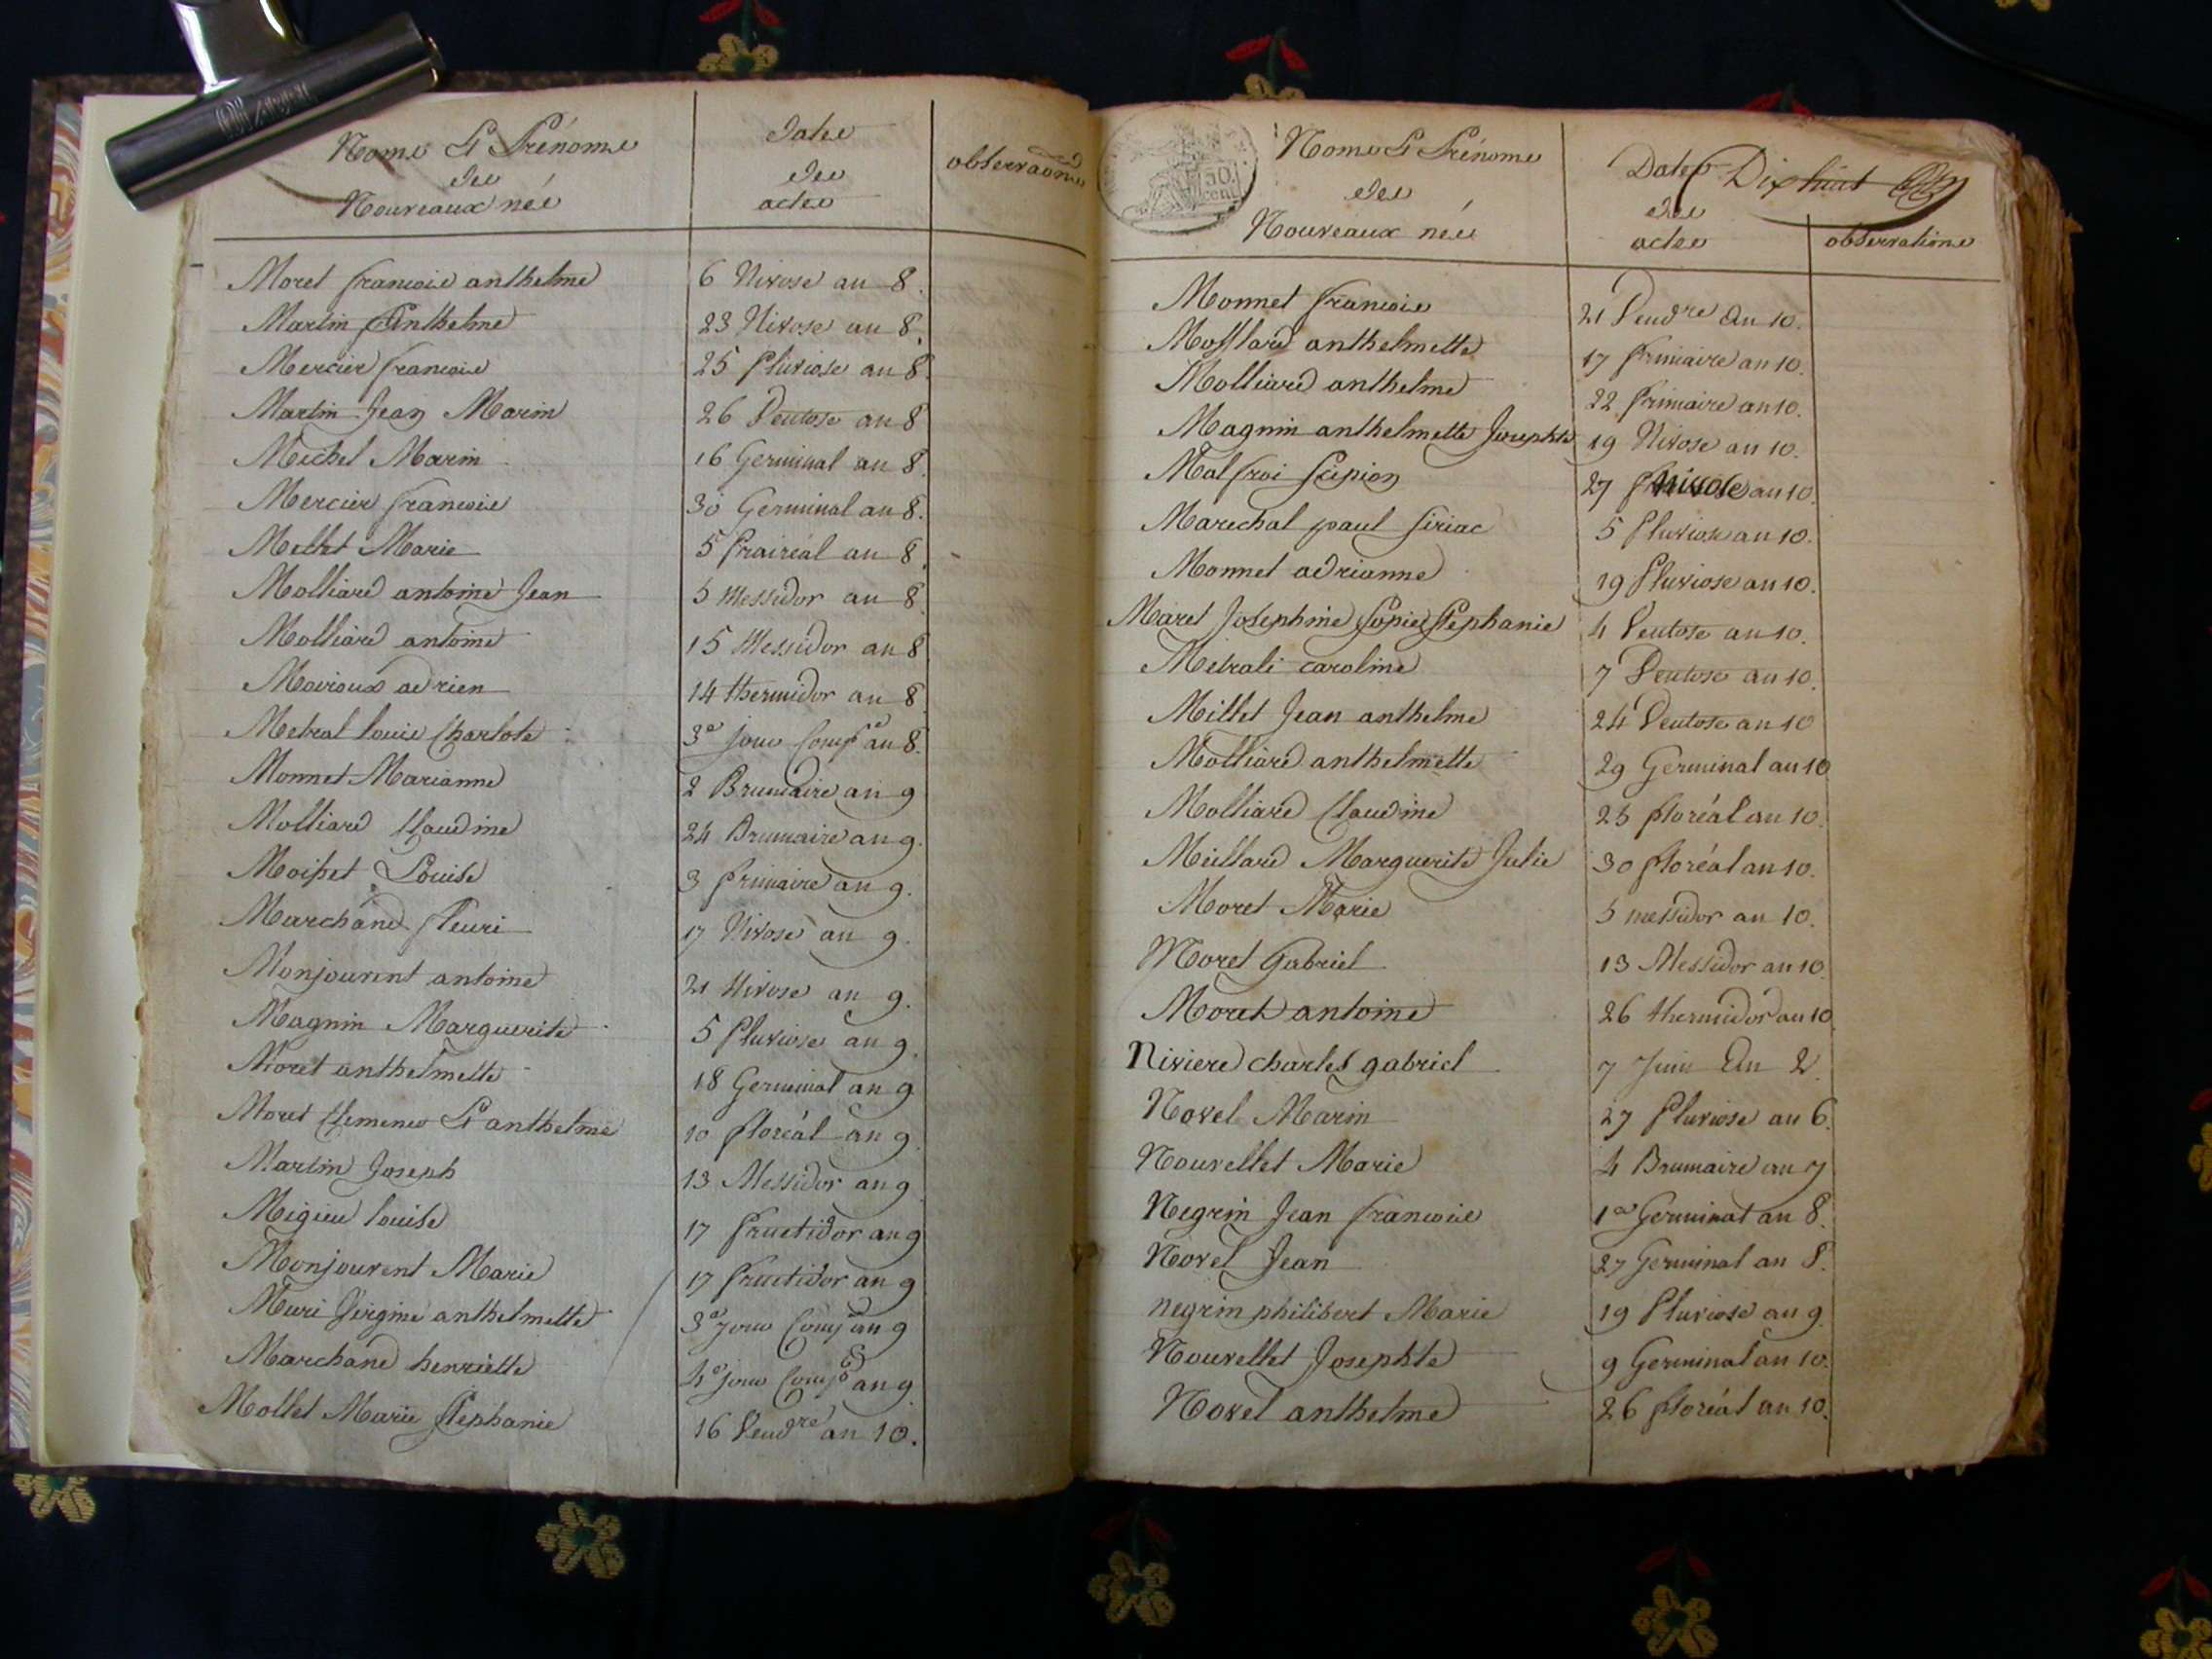 Noms Et Prénoms
des
Nouveaux nés
Date
des
actes
observaons
Moret francois anthelme 6 Nivose au 8.
Martin Anthelme 23 Nivose au 8.
Mercier francois 25 Pluviose au 8.
Martin Jean Marin 26 Ventose au 8
Michel Marin 16 Germinal au 8.
Mercier francois 30 Germinal au 8.
Mellet Marie 5 Prairéal au 8.
Molliard antoine Jean 5 Messidor au 8.
Molliard antoine 15 Messidor au 8
Mavioux adrien 14 thermidor au 8
Metral louis Charlote 3e jour Comp au 8.
Monnet Marianne 2 Brumaire an 9
Molliard Claudine 24 Brumaire an 9.
Moisset Louise 3 frimaire an 9.
Marchand fleuri 17 Nivose an 9.
Monjouvent antoine 21 Nivose an 9.
Magnin Marguerite 5 Pluviose an 9.
Moret anthelmette 18 Germinal an 9
Moret Clemence Et anthelme 10 floréal an 9
Martin Joseph 13 Messidor an 9
Migieu louise 17 fructidor an 9
Monjouvent Marie 17 fructidor an 9
Muri Virgine anthelmette 3e jour Comp an 9
Marchand henriette 4e jour Comp an 9
Mollet Marie Stephanie 16 Vendre an 10.
50.
cen
Noms Et Prénoms
des
Nouveaux nés
Dates
des
actes
Dix huit
observations
Monnet francois 21 Vendre An 10.
Mosslard anthelmette 17 frimaire an 10.
Molliard anthelme 22 frimaire an 10.
Magnin anthelmette Josephte 19 Nivose an 10.
Malfroi Scipion 27 nivose an 10
Marechal paul Siriac 5 Pluviose an 10.
Monnet adrianne 19 Pluviose an 10.
Maret Josephine Sopie Stephanie 4 Ventose an 10.
Metrali caroline 7 Ventose an 10.
Millet Jean anthelme 24 Ventose an 10
Molliard anthelmette 29 Germinal au 10
Molliard Claudine 25 floréal an 10.
Meillard Marguerite Julie 30 floréal an 10.
Moret Marie 5 messidor an 10.
Moret Gabriel 13 Messidor an 10
Moret antoine 26 thermidor an 10
Niviere charles gabriel 7 Juin An 2
Novel Marin 27 Pluviose au 6.
Nouvellet Marie 4 Brumaire an 7
Negrin Jean francois 1er Germinal an 8.
Novel Jean 27 Germinal an 8.
negrin philibert Marie 19 Pluviose an 9.
Nouvellet Josephte 9 Germinal an 10.
Novel anthelme 26 floréal an 10.